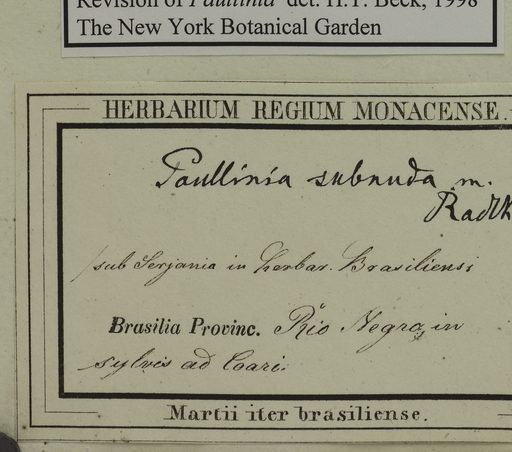 Revision of Paullinia det. H.T. Beck, 1998
The New York Botanical Garden
HERBARIUM REGIUM MONACENSE.
Paullinia subnuda m.
Radlk
/sub Serjania in herbar. Brasiliensi
Brasilia Provinc. Rio Negro, in
sylvis ad Coari.
Martii iter brasiliense.